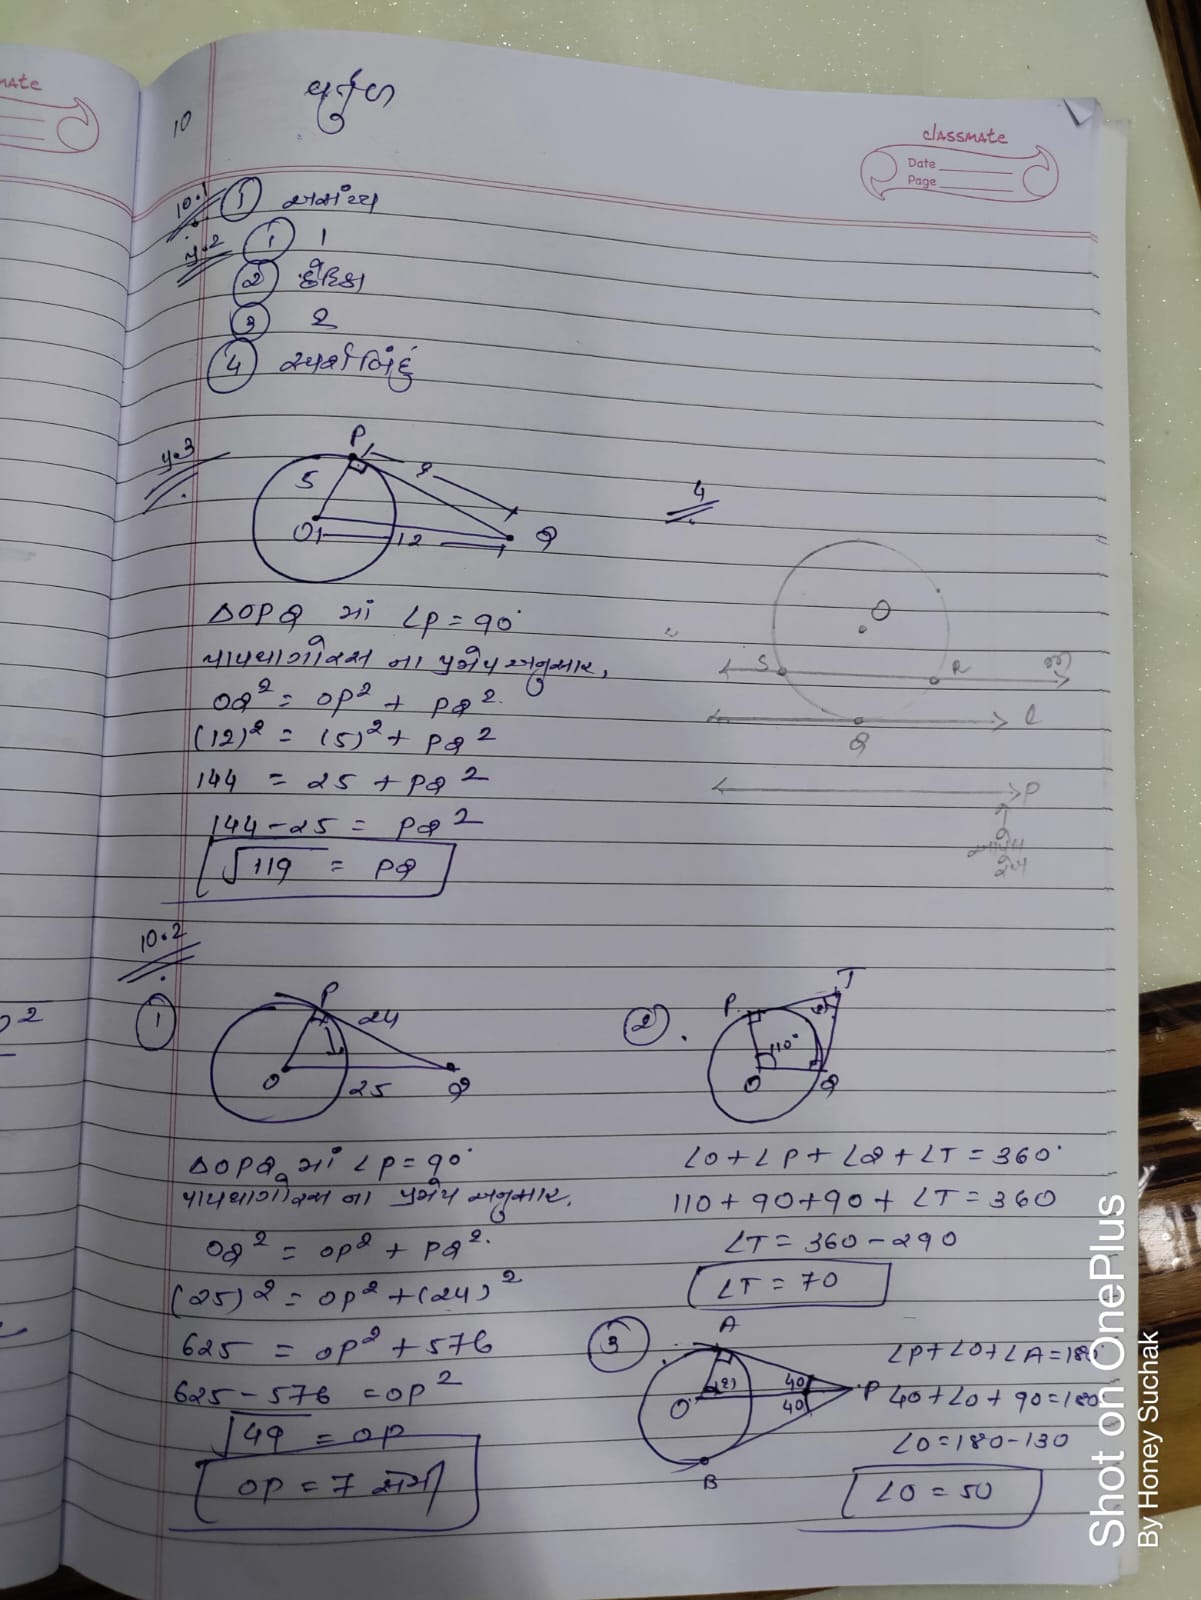 classmate
Date
Page
10 વર્તુળ
10.1 ① અસંખ્ય
પ્ર.2 ① 1
② છેદિકા
③ 2
④ સ્પર્શ બિંદુ
પ્ર.3
P
5
O
12
Q
ΔOPQ માં ∠P = 90°
પાયથાગોરસ ના પ્રમેય અનુસાર,
OQ² = OP² + PQ²
(12)² = (5)² + PQ²
144 = 25 + PQ²
144 - 25 = PQ²
√119 = PQ
4
O
S R m
Q l
P
10.2
①
P
24
O
25
Q
ΔOPQ માં ∠P = 90°
પાયથાગોરસ ના પ્રમેય અનુસાર,
OQ² = OP² + PQ²
(25)² = OP² + (24)²
625 = OP² + 576
625 - 576 = OP²
√49 = OP
OP = 7 સેમી
②
P T
110°
O Q
∠O + ∠P + ∠Q + ∠T = 360°
110 + 90 + 90 + ∠T = 360
∠T = 360 - 290
∠T = 70
③
A
O 40 P
40
B
∠P + ∠O + ∠A = 180°
40 + ∠O + 90 = 180
∠O = 180 - 130
∠O = 50
Shot on OnePlus
By Honey Suchak